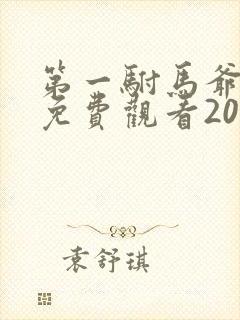 第一駙馬爺
免費觀看20
袁舒琪